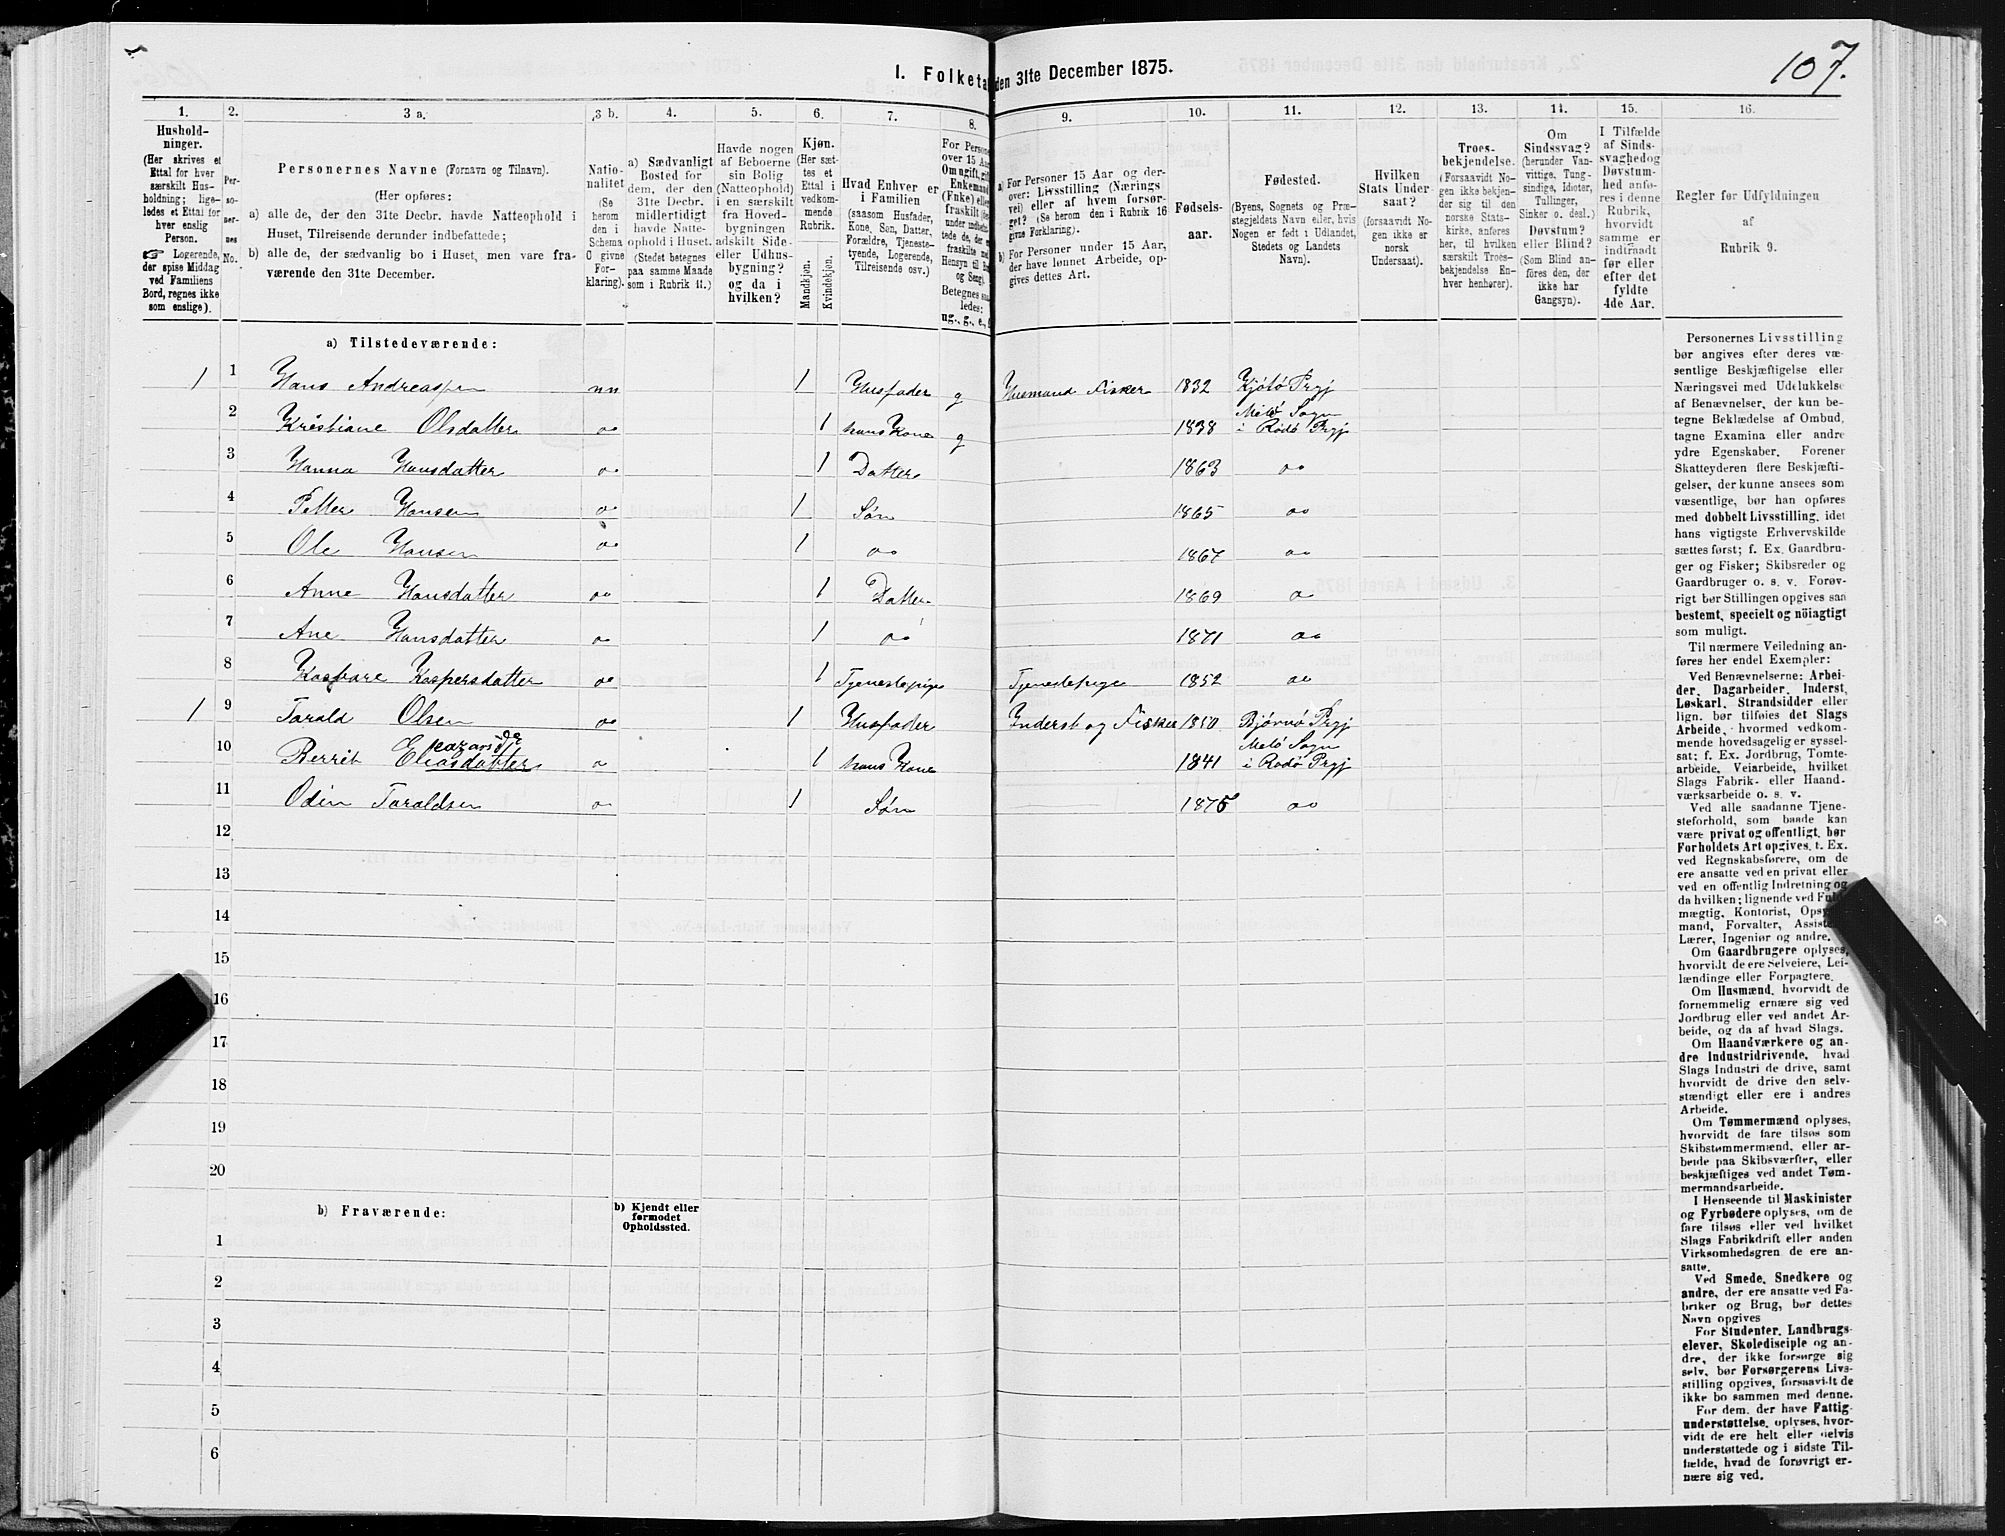 107.
I. Folketal den 31te December 1875.
1.
Hushold-
ninger.
(Her skrives et
Ettal for hver
særskilt Hus-
holdning; lige-
ledes et Ettal for
hver enslig
Person.
☞ Logerende,
der spise Middag
ved Familiens
Bord, regnes ikke
som enslige).
2.
Per-
so-
ner-
nes
No.
3 a.
Personernes Navne (Fornavn og Tilnavn).
(Her opføres:
a) alle de, der den 31te Decbr. havde Natteophold i
Huset, Tilreisende derunder indbefattede;
b) alle de, der sædvanlig bo i Huset, men vare fra-
værende den 31te December.
3 b.
Natio-
nalitet
(Se
herom
den i
Schema
O givne
For-
klaring).
4.
a) Sædvanligt
Bosted for
dem, der den
31te Decbr.
midlertidigt
havde Natte-
ophold i Huset.
(Stedet betegnes
paa samme Maade
som i Rubrik 11.)
5.
Havde nogen
af Beboerne
sin Bolig
(Natteophold)
i en særskilt
fra Hoved-
bygningen
adskilt Side-
eller Udhus-
bygning?
og da i
hvilken?
6.
Kjøn.
(Her sæt-
tes et
Ettal i
vedkom-
mende
Rubrik.
Mandkjøn.
Kvindekjøn.
7.
Hvad Enhver er
i Familien
(saasom Husfader,
Kone, Søn, Datter,
Forældre, Tjeneste-
tyende, Logerende,
Tilreisende osv.)
8.
For Person
over 15 Aar
Om ugift, gift
Enkemand
(Enke) eller
fraskilt
Betegnes saa-
ledes:
ug., g., e.,
9.
a) For Personer 15 Aar og der-
over: Livsstilling (Nærings
vei) eller af hvem forsør-
get? (Se herom den i Rubrik 16
givne Forklaring).
b) For Personer under 15 Aar,
der have lønnet Arbeide, op-
gives dettes Art.
10.
Fødsels-
aar.
11.
Fødested.
(Byens, Sognets og Præ-
stegjeldets Navn eller, hvis
Nogen er født i Udlandet,
Stedets og Landets
Navn).
12.
Hvilken
Stats Under-
saat?
(forsaavidt No-
gen ikke er
norsk
Undersaat).
13.
Troes-
bekjendelse.
(Forsaavidt No-
gen ikke bekjen-
der sig til den
norske Stats-
kirke, anføres
her, til hvilken
særskilt Troes-
bekjendelse En-
hver henhører).
14.
Om
Sindssvag?
(herunder Van-
vittige, Tung-
sindige, Idioter,
Tullinger,
Sinker o. desl.)
Døvstum?
eller Blind?
(Som Blind an-
føres den, der
ikke har
Gangsyn).
15.
I Tilfælde
af Sinds-
svaghed og
Døvstum-
hed anfø-
res i denne
Rubrik,
hvorvidt
samme er
indtraadt
før eller
efter det
fyldte
4de Aar.
16.
Regler før Udfyldningen
af
Rubrik 9.
a) Tilstedeværende:
1 1 Hans Andreassen nn 1 Husfader g Husmand Fisker 1832 Kjølø Prgj
2 Kristiane Olsdatter oo 1 hans Kone g 1838 Melø Sogn i Rødø Prgj
3 Hanna Hansdatter oo 1 Datter 1863 oo
4 Petter Hansen oo 1 Søn 1865 oo
5 Ole Hansen oo 1 oo 1867 oo
6 Anne Hansdatter oo 1 Datter 1869 o
7 Ane Hansdatter o 1 oo 1871 oo
8 Kaspersdatter oo 1 Tjenestepige Tjenestepige 1852 oo
1 9 Tarald Olsen oo 1 Husfader Inderst og Fisker 1850 Bjørnø Prgj
10 Berrit Eliasdatter o 1 hans Kone 1841 Melø Sogn i Rødø Prgj
11 Odin Taraldsen o 1 Søn 1875 oo
12
13
14
15
16
17
18
19
20
b) Fraværende:
b) Kjendt eller
formodet
Opholdssted.
1
2
3
4
5
6
Personernes Livsstilling
bør angives efter deres væ-
sentlige Beskjæftigelse eller
Næringsvei med Udelukkelse
af Benævnelser, der kun be-
tegne Beklædelse af Ombud,
tagne Examina eller andre
ydre Egenskaber. Forener
Skatteyderen flere Beskjæfti-
gelser, der kunne ansees som
væsentlige, bør han opføres
med dobbelt Livsstilling, idet
hans vigtigste Erhvervskilde
sættes først; f. Ex. Gaardbru-
ger og Fisker; Skibsreder og
Gaardbruger o. s. v. Forøv-
rigt bør Stillingen opgives saa
bestemt, specielt og nöiagtigt
som muligt.
Til nærmere Veiledning an-
føres her endel Exempler:
Ved Benævnelserne: Arbei-
der, Dagarbeider, Inderst,
Løskarl, Strandsidder eller
lign. bør tilføies det Slags
Arbeide, hvormed vedkom-
mende hovedsagelig er syssel-
sat; f. Ex. Jordbrug, Tomte-
arbeide, Veiarbeide, hvilket
Slags Fabrik- eller Haand-
værksarbeide o. s. v.
Ved alle saadanne Tjene-
steforhold, som baade kan
være privat og offentligt, bør
Forholdets Art opgives, f. Ex.
ved Regnskabsførere, om de
ere ansatte ved en privat eller
ved en offentlig Indretning og
da hvilken; lignende ved Fuld-
mægtig, Kontorist, Opsyns-
mand, Forvalter, Assistent,
Lærer, Ingeniør og andre.
Om Gaardbrugere oplyses,
hvorvidt de ere Selveiere, Lei-
lændinge eller Forpagtere.
Om Husmænd, hvorvidt de
fornemmelig ernære sig ved
Jordbrug eller ved andet Ar-
beide, og da af hvad Slags.
Om Haandværkere og an-
dre Industridrivende, hvad
Slags Industri de drive, samt
hvorvidt de drive den selv-
stændigt eller ere i andres
Arbeide.
Om Tømmermænd oplyses,
hvorvidt de fare tilsøs som
Skibstømmermænd, eller ar-
beide paa Skibsværfter, eller
beskjæftiges ved andet Tøm-
mermandsarbeide.
I Henseende til Maskinister
og Fyrbødere oplyses, om de
fare tilsøs eller ved hvilket
Slags Fabrikdrift eller anden
Virksomhedsgren de ere an-
satte.
Ved Smede, Snedkere og
andre, der ere ansatte ved Fa-
briker og Brug, bør dettes
Navn opgives
For Studenter, Landbrugs-
elever, Skoledisciple og an-
dre, der ikke forsørge sig
selv, bør Forsørgerens Livs-
stilling opgives, forsaavidt de
ikke bo sammen med denne.
For dem, der have Fattig-
understøttelse, oplyses, hvor-
vidt de ere helt eller delvis
understøttede og i sidste Til-
fælde, hvad de forøvrigt er-
nære sig ved.